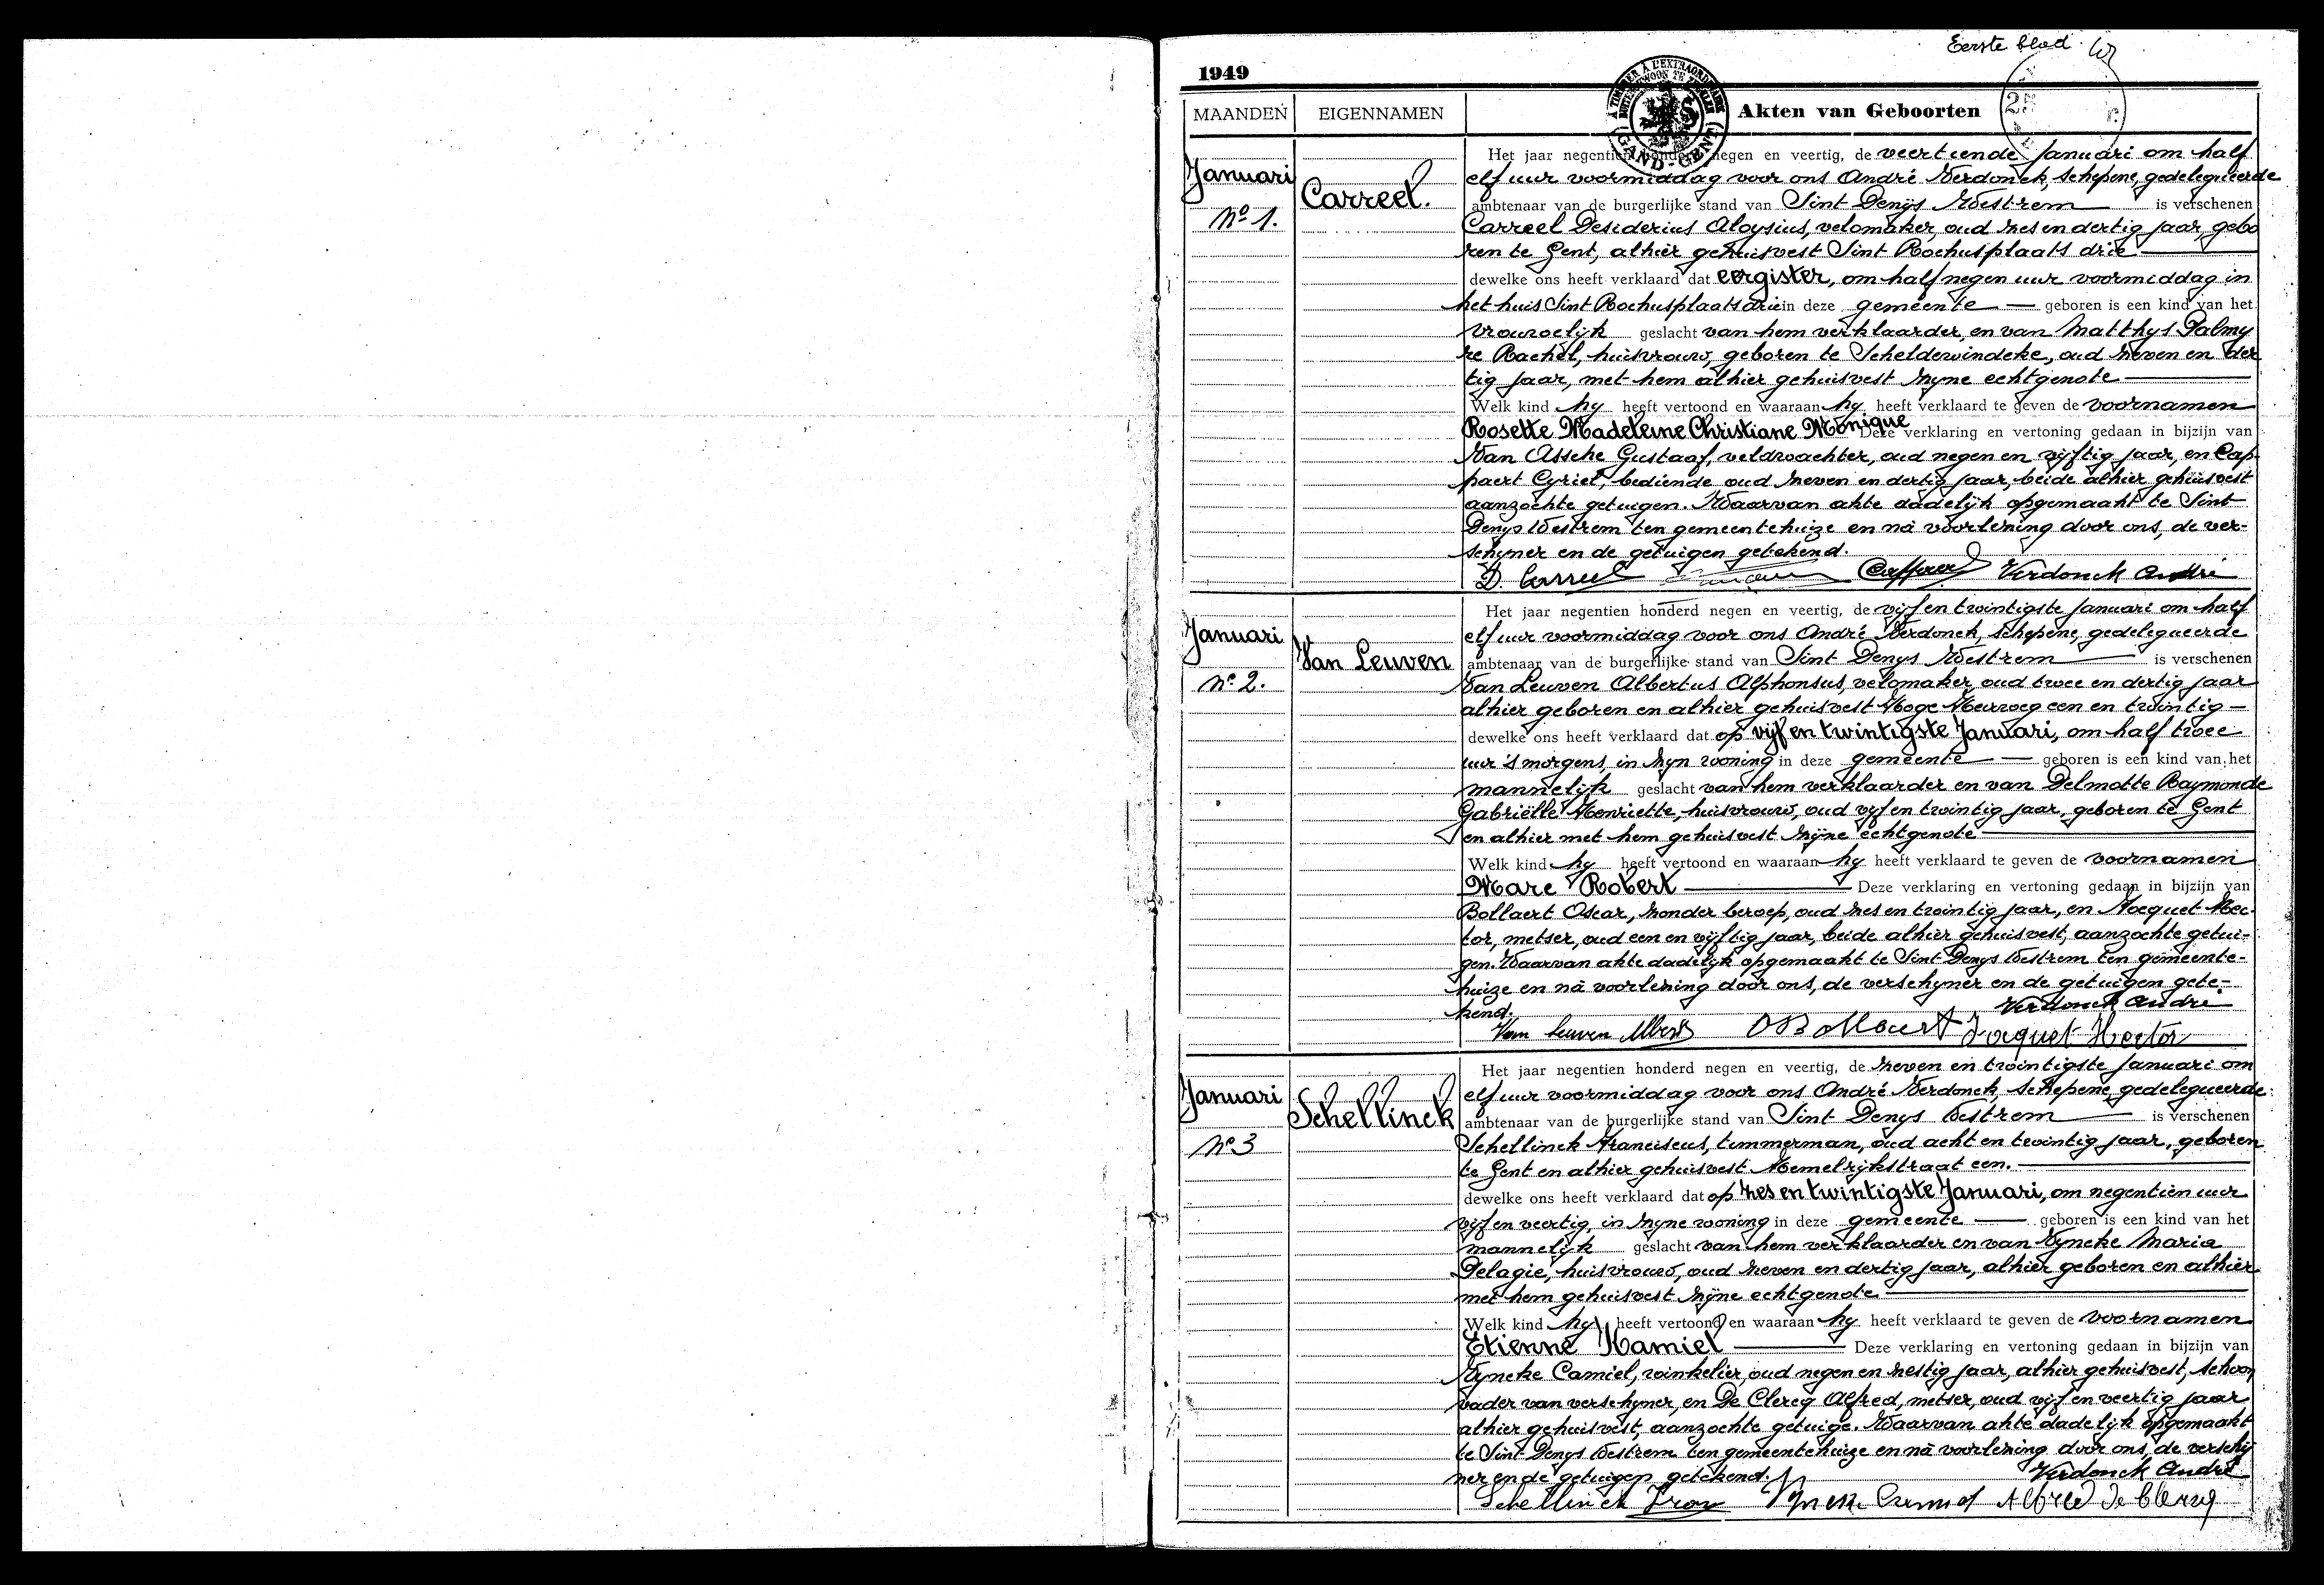 Eerste blad
1949
MAANDEN EIGENNAMEN Akten van Geboorten
GAND-GENT
Januari
No 1.
Carreel.
Het jaar negentien honderd negen en veertig, de veertiende Januari om half
elf uur voormiddag voor ons André Verdonck, schepene, gedelegueerde
ambtenaar van de burgerlijke stand van Sint Denijs Westrem is verschenen
Carreel Desiderius Aloysius, velomaker, oud zes en dertig jaar, gebo
ren te Gent, alhier gehuisvest Sint Rochusplaats drie
dewelke ons heeft verklaard dat eergister, om half negen uur voormiddag in
het huis Sint Rochusplaats drie in deze gemeente geboren is een kind van het
vrouwelijk geslacht van hem verklaarder, en van Matthys Palmy
re Rachel, huisvrouw, geboren te Scheldewindeke, oud zeven en der
tig jaar, met hem alhier gehuisvest zyne echtgenote
Welk kind hy heeft vertoond en waaraan hy heeft verklaard te geven de voornamen
Rosette Madeleine Christiane Monique Deze verklaring en vertoning gedaan in bijzijn van
Van Assche Gustaaf, veldwachter, oud negen en vyftig jaar, en Cap
paert Cyriel, bediende oud zeven en dertig jaar, beide alhier gehuisvest
aanzochte getuigen. Waarvan akte dadelijk opgemaakt te Sint
Denys Westrem ten gemeentehuize en nà voorlezing door ons, de ver-
schyner en de getuigen getekend.
D. Carreel Verdonck André
Januari
No 2.
Van Leuven
Het jaar negentien honderd negen en veertig, de vyf en twintigste Januari om half
elf uur voormiddag voor ons André Verdonck, schepene, gedelegueerde
ambtenaar van de burgerlijke stand van Sint Denys Westrem is verschenen
Van Leuven Albertus Alphonsus, velomaker, oud twee en dertig jaar
alhier geboren en alhier gehuisvest Hoge Heirweg een en twintig
dewelke ons heeft verklaard dat op vijf en twintigste Januari, om half twee
uur 's morgens, in zyn woning in deze gemeente geboren is een kind van het
mannelijk geslacht van hem verklaarder en van Delmotte Raymonde
Gabriëlle Henriette, huisvrouw, oud vyf en twintig jaar, geboren te Gent
en alhier met hem gehuisvest zyne echtgenote
Welk kind hy heeft vertoond en waaraan hy heeft verklaard te geven de voornamen
Marc Robert Deze verklaring en vertoning gedaan in bijzijn van
Bollaert Oscar, zonder beroep, oud zes en twintig jaar, en Hocquet Hec
tor, metser, oud een en vyftig jaar, beide alhier gehuisvest, aanzochte getui-
gen. Waarvan akte dadelijk opgemaakt te Sint Denys Westrem ten gemeente-
huize en nà voorlezing door ons, de verschyner en de getuigen gete-
kend. Verdonck André
Van Leuven Albert O Bollaert Hector
Januari
No 3
Schellinck
Het jaar negentien honderd negen en veertig, de zeven en twintigste Januari om
elf uur voormiddag voor ons André Verdonck, schepene, gedelegueerde
ambtenaar van de burgerlijke stand van Sint Denys Westrem is verschenen
Schellinck Franciscus, timmerman, oud acht en twintig jaar, geboren
te Gent en alhier gehuisvest Hemelrykstraat een.
dewelke ons heeft verklaard dat op zes en twintigste Januari, om negentien uur
vyf en veertig, in zyne woning in deze gemeente geboren is een kind van het
mannelijk geslacht van hem verklaarder en van Vyncke Maria
Pelagie, huisvrouw, oud zeven en dertig jaar, alhier geboren en alhier
met hem gehuisvest zyne echtgenote
Welk kind hy heeft vertoond en waaraan hy heeft verklaard te geven de voornamen
Etienne Kamiel Deze verklaring en vertoning gedaan in bijzijn van
Vyncke Camiel, winkelier, oud negen en zestig jaar, alhier gehuisvest, schoon
vader van verschyner, en De Clercq Alfred, metser, oud vyf en veertig jaar
alhier gehuisvest, aanzochte getuige. Waarvan akte dadelijk opgemaakt
te Sint Denys Westrem ten gemeentehuize en nà voorlezing door ons, de verschy
ner en de getuigen getekend. Verdonck André
Schellinck Alfred De Clercq